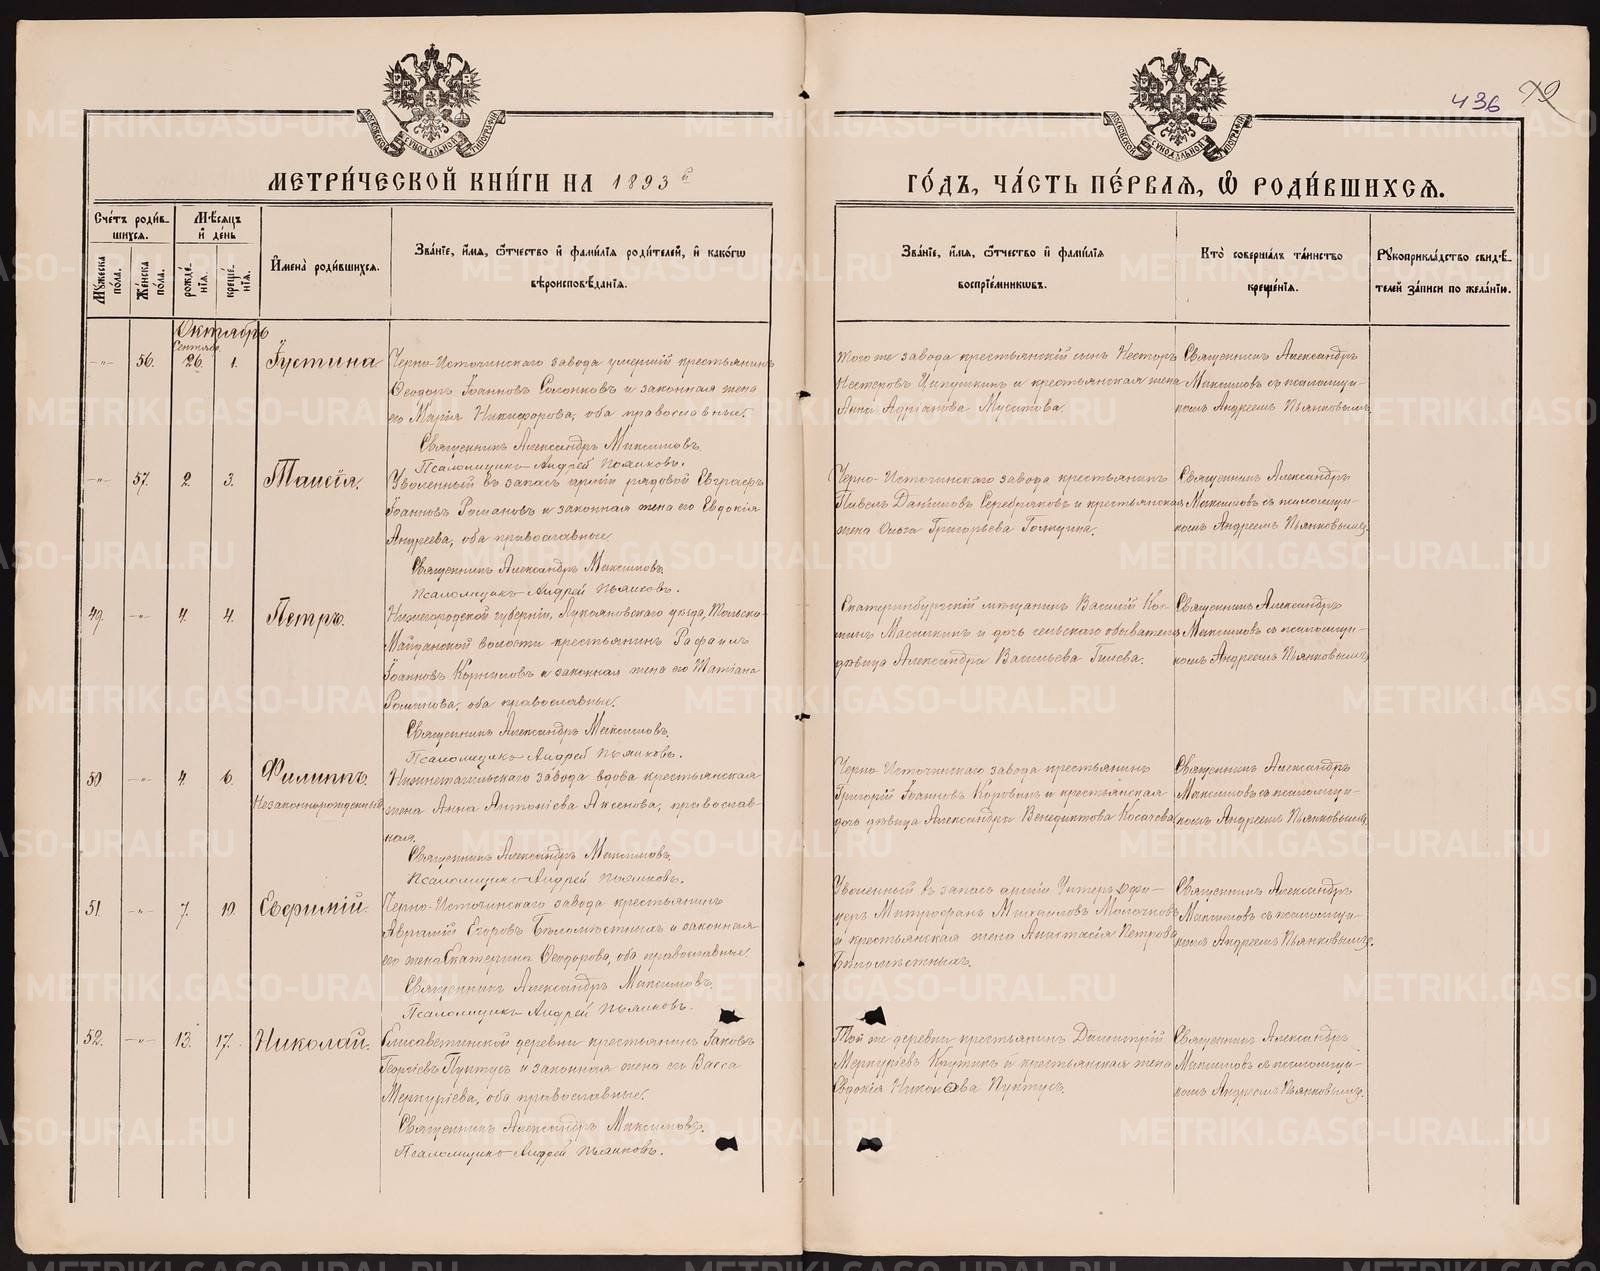 436 79
МЕТРИЧЕСКОЙ КНИГИ НА 1893 й
ГОДЪ, ЧАСТЬ ПЕРВАЯ, Ѡ РОДИВШИХСЯ.
Счетъ родив-
шихся.
Мѣсяцъ
и день
Имена родившихся.
Званіе, имя, ѿтчество и фамилія родителей, и какогѡ
вѣроисповѣданія.
Мужеска
пола.
Женска
пола.
рожде-
нія.
креще-
нія.
Званіе, имя, ѿтчество и фамилія
воспріемникѡвъ.
Кто совершалъ таинство
крещенія.
Рукоприкладство свидѣ-
телей записи по желанію.
Октябрь
Сентябр.
-"- 56. 26. 1. Іустина
Черно-Источинскаго завода умершій крестьянинъ
Ѳеодоръ Іоанновъ Солонковъ и законная жена
его Марія Никифорова, оба православные.
Священникъ Александръ Максимовъ.
Псаломщикъ Андрей Пьянковъ.
Того же завода крестьянскій сынъ Несторъ
Нестеровъ и крестьянская жена
Анна Адріанова
Священникъ Александръ
Максимовъ съ псаломщи-
комъ Андреемъ Пьянковымъ.
-"- 57. 2. 3. Таисія.
Уволенный въ запасъ арміи рядовой Евграфъ
Іоанновъ Романовъ и законная жена его Евдокія
Андреева, оба православные.
Священникъ Александръ Максимовъ.
Псаломщикъ Андрей Пьянковъ.
Черно-Источинскаго завода крестьянинъ
Павелъ Даниловъ Серебряковъ и крестьянская
жена Ольга Григорьева Голицина.
Священникъ Александръ
Максимовъ съ псаломщи-
комъ Андреемъ Пьянковымъ.
49. -"- 4. 4. Петръ.
Нижегородской губерніи, Лукояновскаго уѣзда, Тольско-
Майданской волости крестьянинъ Рафаилъ
Іоанновъ Корниловъ и законная жена его Татіана
Романова, оба православные.
Священникъ Александръ Максимовъ.
Псаломщикъ Андрей Пьянковъ.
Екатеринбургскій мѣщанинъ Василій
и дочь сельскаго обывателя
дѣвица Александра Васильева Гилева.
Священникъ Александръ
Максимовъ съ псаломщи-
комъ Андреемъ Пьянковымъ.
50. -"- 4. 6. Филиппъ.
Незаконнорожденный
Нижнетагильскаго завода вдова крестьянская
жена Анна Антоніева Аксенова, православ-
ная.
Священникъ Александръ Максимовъ.
Псаломщикъ Андрей Пьянковъ.
Черно-Источинскаго завода крестьянинъ
Григорій Іоанновъ Коровинъ и крестьянская
дочь дѣвица Александра Венедиктова Косачева.
Священникъ Александръ
Максимовъ съ псаломщи-
комъ Андреемъ Пьянковымъ.
51. -"- 7. 10. Евфимій.
Черно-Источинскаго завода крестьянинъ
Аврамій Егоровъ Бѣломѣстныхъ и законная
его жена Екатерина Ѳеодорова, оба православные.
Священникъ Александръ Максимовъ.
Псаломщикъ Андрей Пьянковъ.
Уволенный въ запасъ арміи Унтеръ Офи-
церъ Митрофанъ Михаиловъ Молочковъ
и крестьянская жена Анастасія Петрова
Бѣломѣстныхъ.
Священникъ Александръ
Максимовъ съ псаломщи-
комъ Андреемъ Пьянковымъ.
52. -"- 13. 17. Николай.
Елисаветинской деревни крестьянинъ Іаковъ
Георгіевъ Пунтусъ и законная жена его Васса
Меркуріева, оба православные.
Священникъ Александръ Максимовъ.
Псаломщикъ Андрей Пьянковъ.
Той же деревни крестьянинъ Димитрій
Меркуріевъ Крутикъ и крестьянская жена
Евдокія Никонова Пунтусъ.
Священникъ Александръ
Максимовъ съ псаломщи-
комъ Андреемъ Пьянковымъ.
METRIKI.GASO-URAL.RU